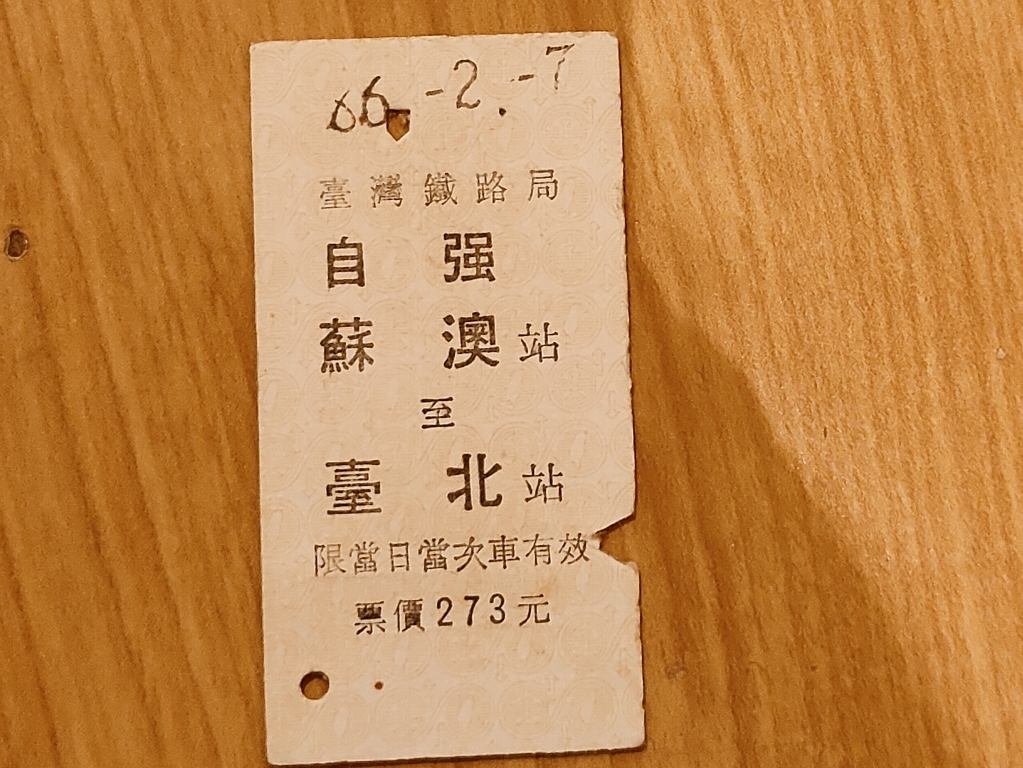 66.-2.-7
臺灣鐵路局
自强
蘇澳站
至
臺北站
限當日當次車有效
票價273元